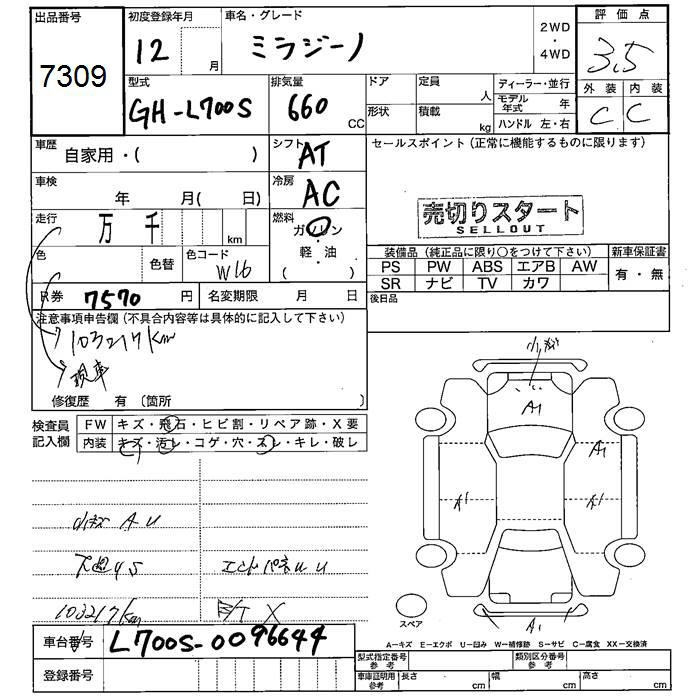 出品番号 初度登録年月 車名・グレード 2WD・4WD 評価点
7309 12 月 ミラジーノ 3.5
型式 排気量 ドア 定員 人 ディーラー・並行 外装 内装
GH-L700S 660 CC 形状 積載 kg モデル年式 年 C C
ハンドル 左・右
車歴 自家用・( ) シフト AT セールスポイント(正常に機能するものに限ります)
車検 年 月( 日) 冷房 AC
売切りスタート
SELLOUT
走行 万 千 km 燃料 ガソリン・軽・油 ( )
色 色替 色コード W16
装備品(純正品に限り○をつけて下さい) 新車保証書
PS PW ABS エアB AW 有・無
SR ナビ TV カワ
R券 7570 円 名変期限 月 日 後日品
注意事項申告欄(不具合内容等は具体的に記入して下さい)
103217km
現車
修復歴 有(箇所 )
小キズ
検査員記入欄 FW キズ・飛石・ヒビ割・リペア跡・X要
内装 キズ・汚レ・コゲ・穴・スレ・キレ・破レ
A1
A1
A1 A1
小キズ A U
下廻り S
エンドパネル U
103217km
X
スペア
A1
A-キズ E-エクボ U-凹み W-補修跡 S-サビ C-腐食 XX-交換済
車台番号 L700S-0096644
登録番号
型式指定番号 参考 類別区分番号 参考
車庫証明用 参考 長さ cm 幅 cm 高さ cm